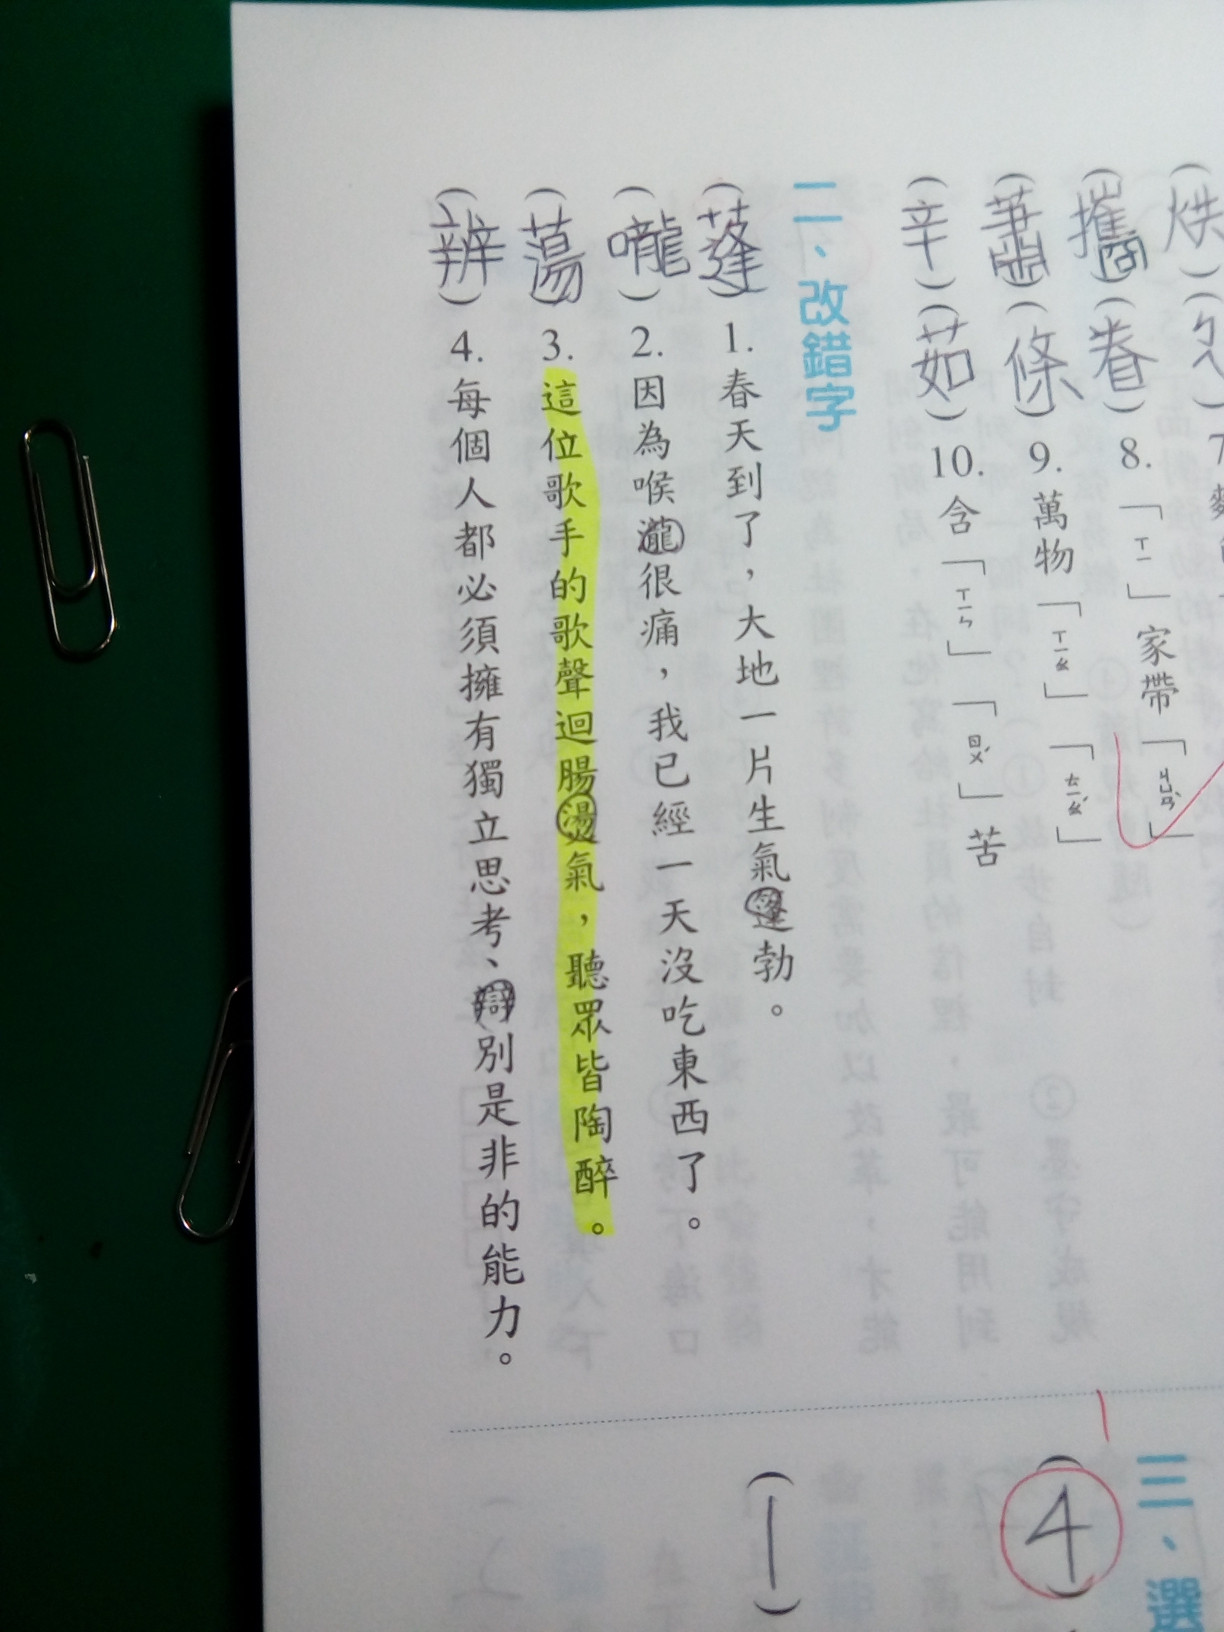 (烘)(久)7.
(攜)(眷)8.「ㄒㄧ」家帶「ㄐㄩㄢˋ」
(蕭)(條)9.萬物「ㄒㄧㄠ」「ㄊㄧㄠˊ」
(辛)(茹)10.含「ㄒㄧㄣ」「ㄖㄨˊ」苦
二、改錯字
(蓬)1.春天到了，大地一片生氣篷勃。
(嚨)2.因為喉瀧很痛，我已經一天沒吃東西了。
(蕩)3.這位歌手的歌聲迴腸燙氣，聽眾皆陶醉。
(辨)4.每個人都必須擁有獨立思考、辯別是非的能力。
三、選
(4)
(1)